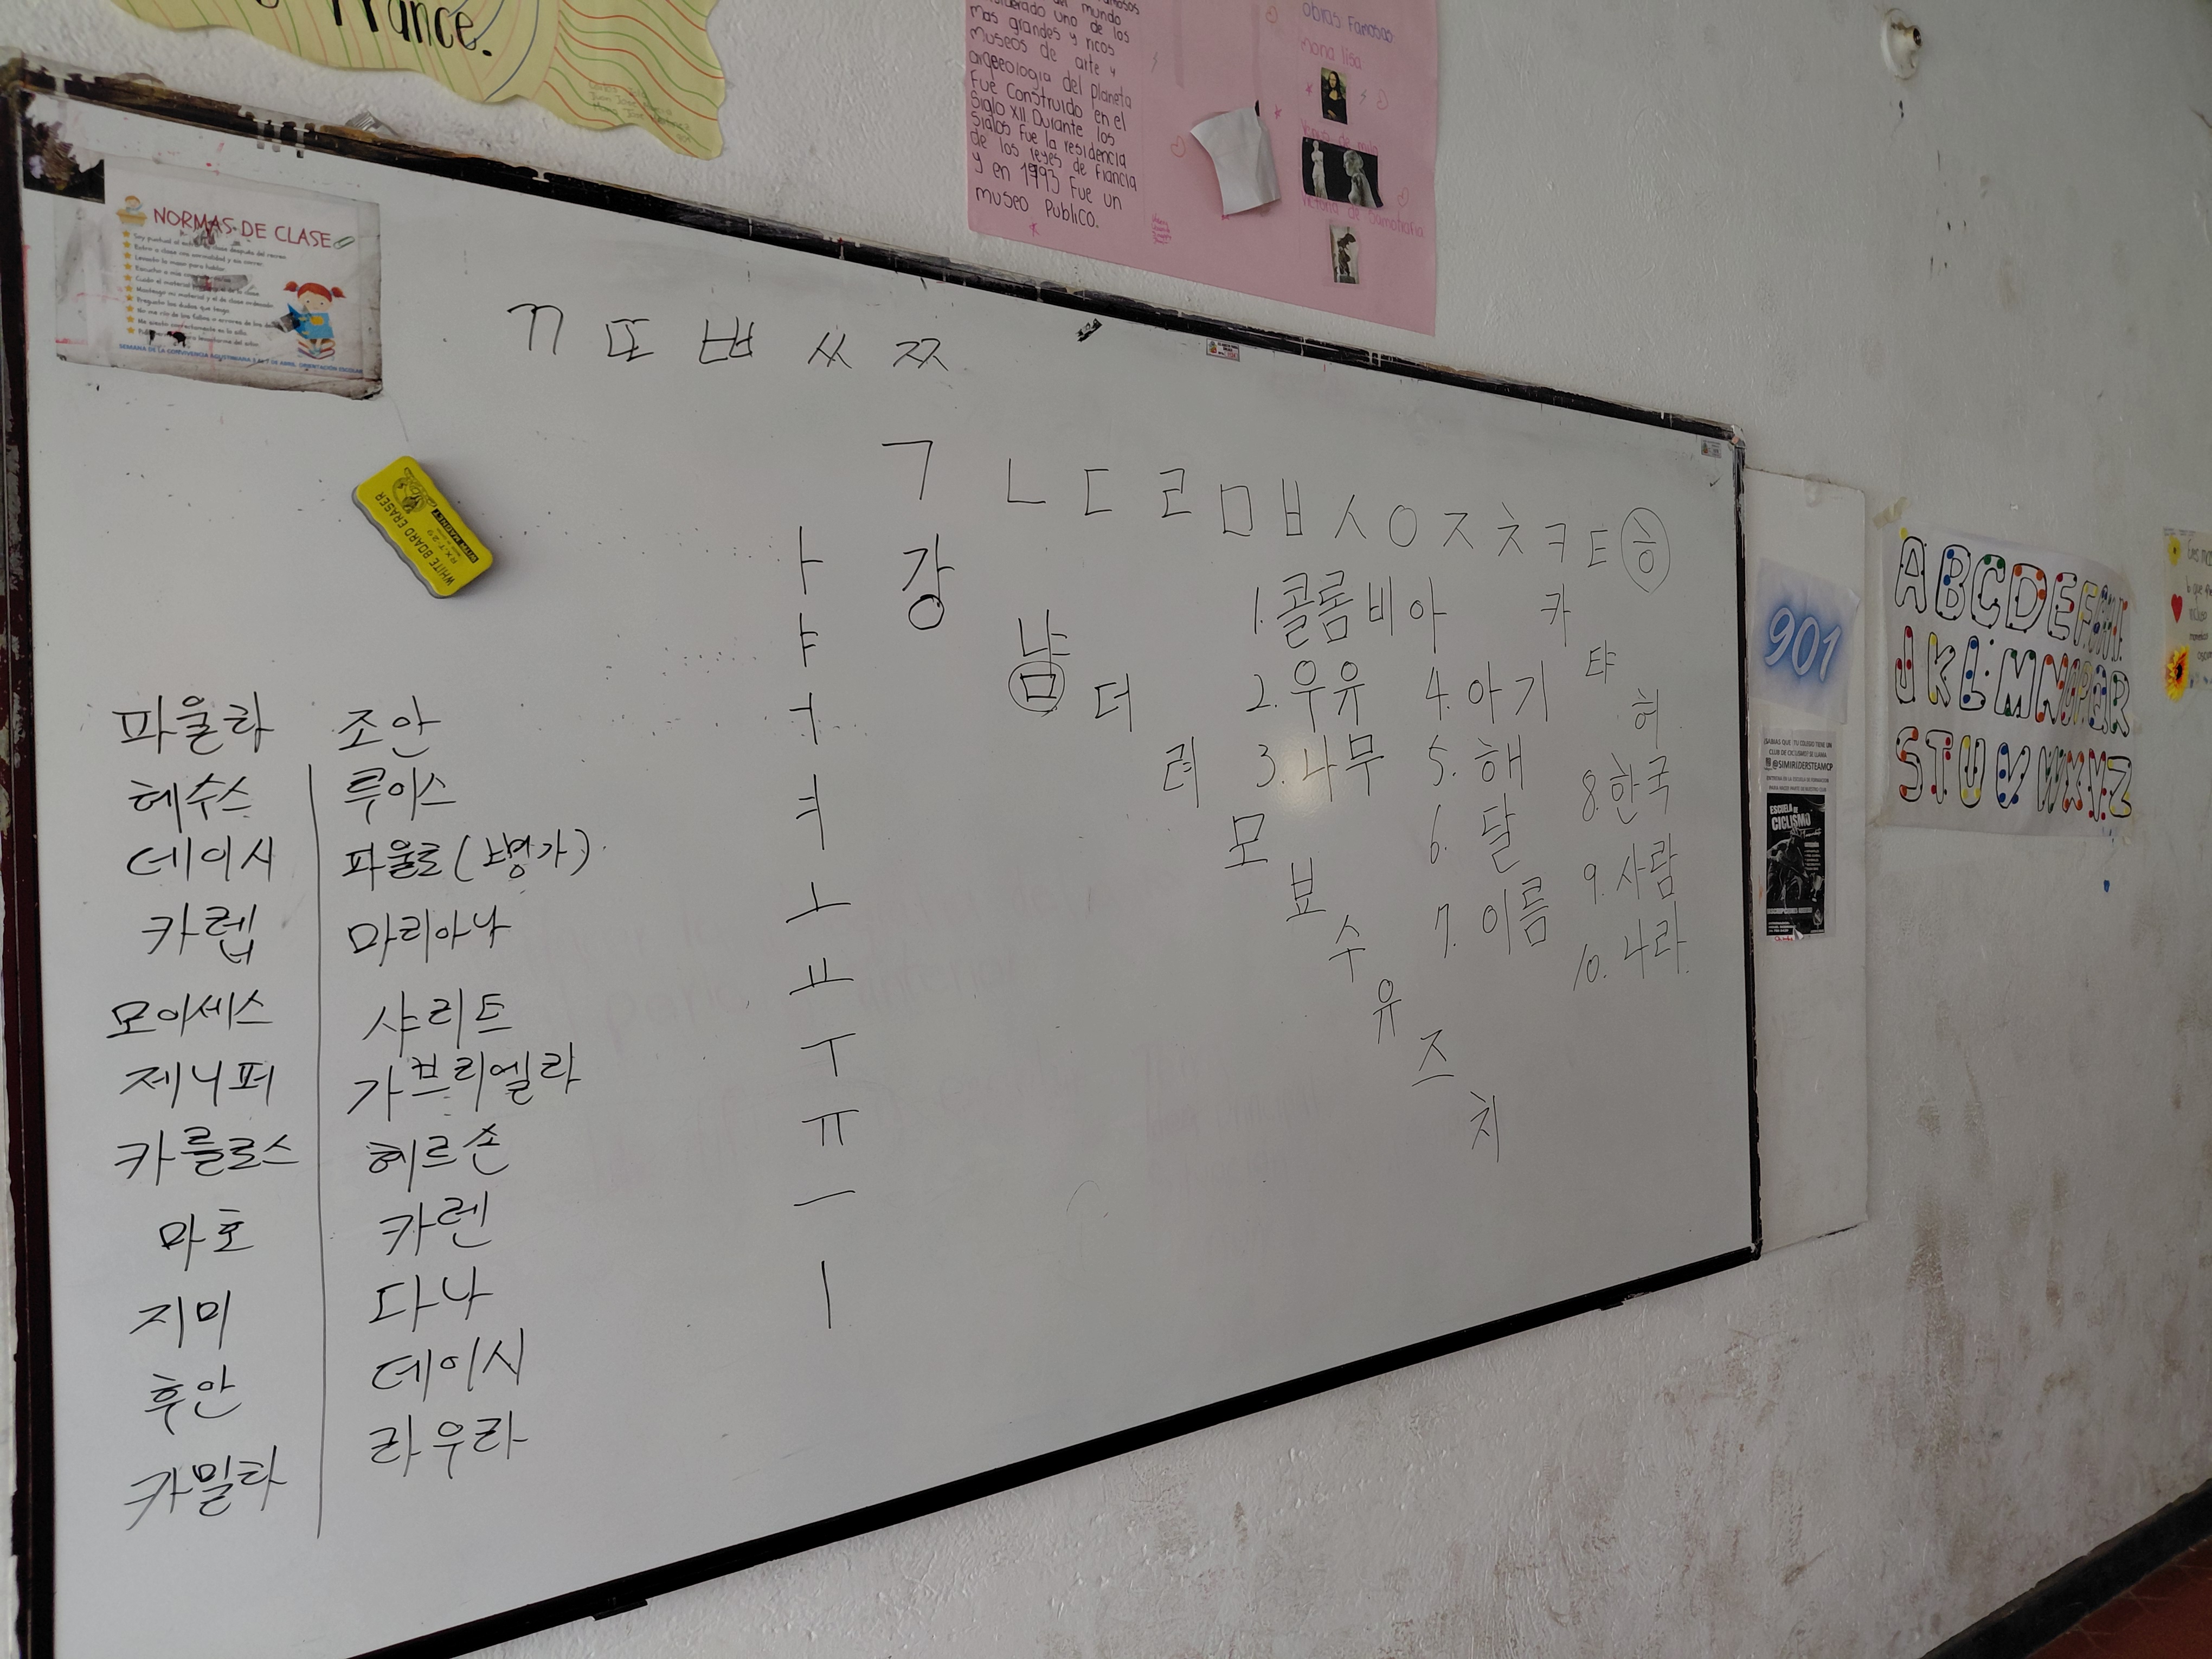 France.
famosos
del mundo
considerado uno de los
mas grandes y ricos
museos de arte y
arqeologia del planeta
Fue Construido en el
Siglo XII Durante los
siglos fue la residencia
de los reyes de Francia
y en 1993 Fue un
museo Publico.
Obras Famosas
mona lisa
Venus de milo
Victoria de Samotracia
NORMAS DE CLASE
SEMANA DE LA CONVIVENCIA AGUSTINIANA 3 AL 7 DE ABRIL. ORIENTACIÓN ESCOLAR
WHITE BOARD ERASER
ㄲ ㄸ ㅃ ㅆ ㅉ
ㄱ ㄴ ㄷ ㄹ ㅁ ㅂ ㅅ ㅇ ㅈ ㅊ ㅋ ㅌ ㅎ
ㅏ 강
ㅑ 냠
ㅓ 더
ㅕ 려
ㅗ 모
ㅛ 뵤
ㅜ 수
ㅠ 유
ㅡ 즈
ㅣ 치
카
탸
허
1. 콜롬비아
2. 우유
3. 나무
4. 아기
5. 해
6. 달
7. 이름
8. 한국
9. 사람
10. 나라
파울라
헤수스
데이시
카렙
모이세스
제니퍼
카를로스
마호
지미
후안
카밀라
조안
루이스
파울로
마리아나
샤리트
가브리엘라
헤르손
카렌
다나
데이시
라우라
901
¿SABIAS QUE TU COLEGIO TIENE UN
CLUB DE CICLISMO? SE LLAMA
@SIMIRIDERSTEAMCP
ESCUELA DE
CICLISMO
A B C D E F G H I
J K L M N O P Q R
S T U V W X Y Z